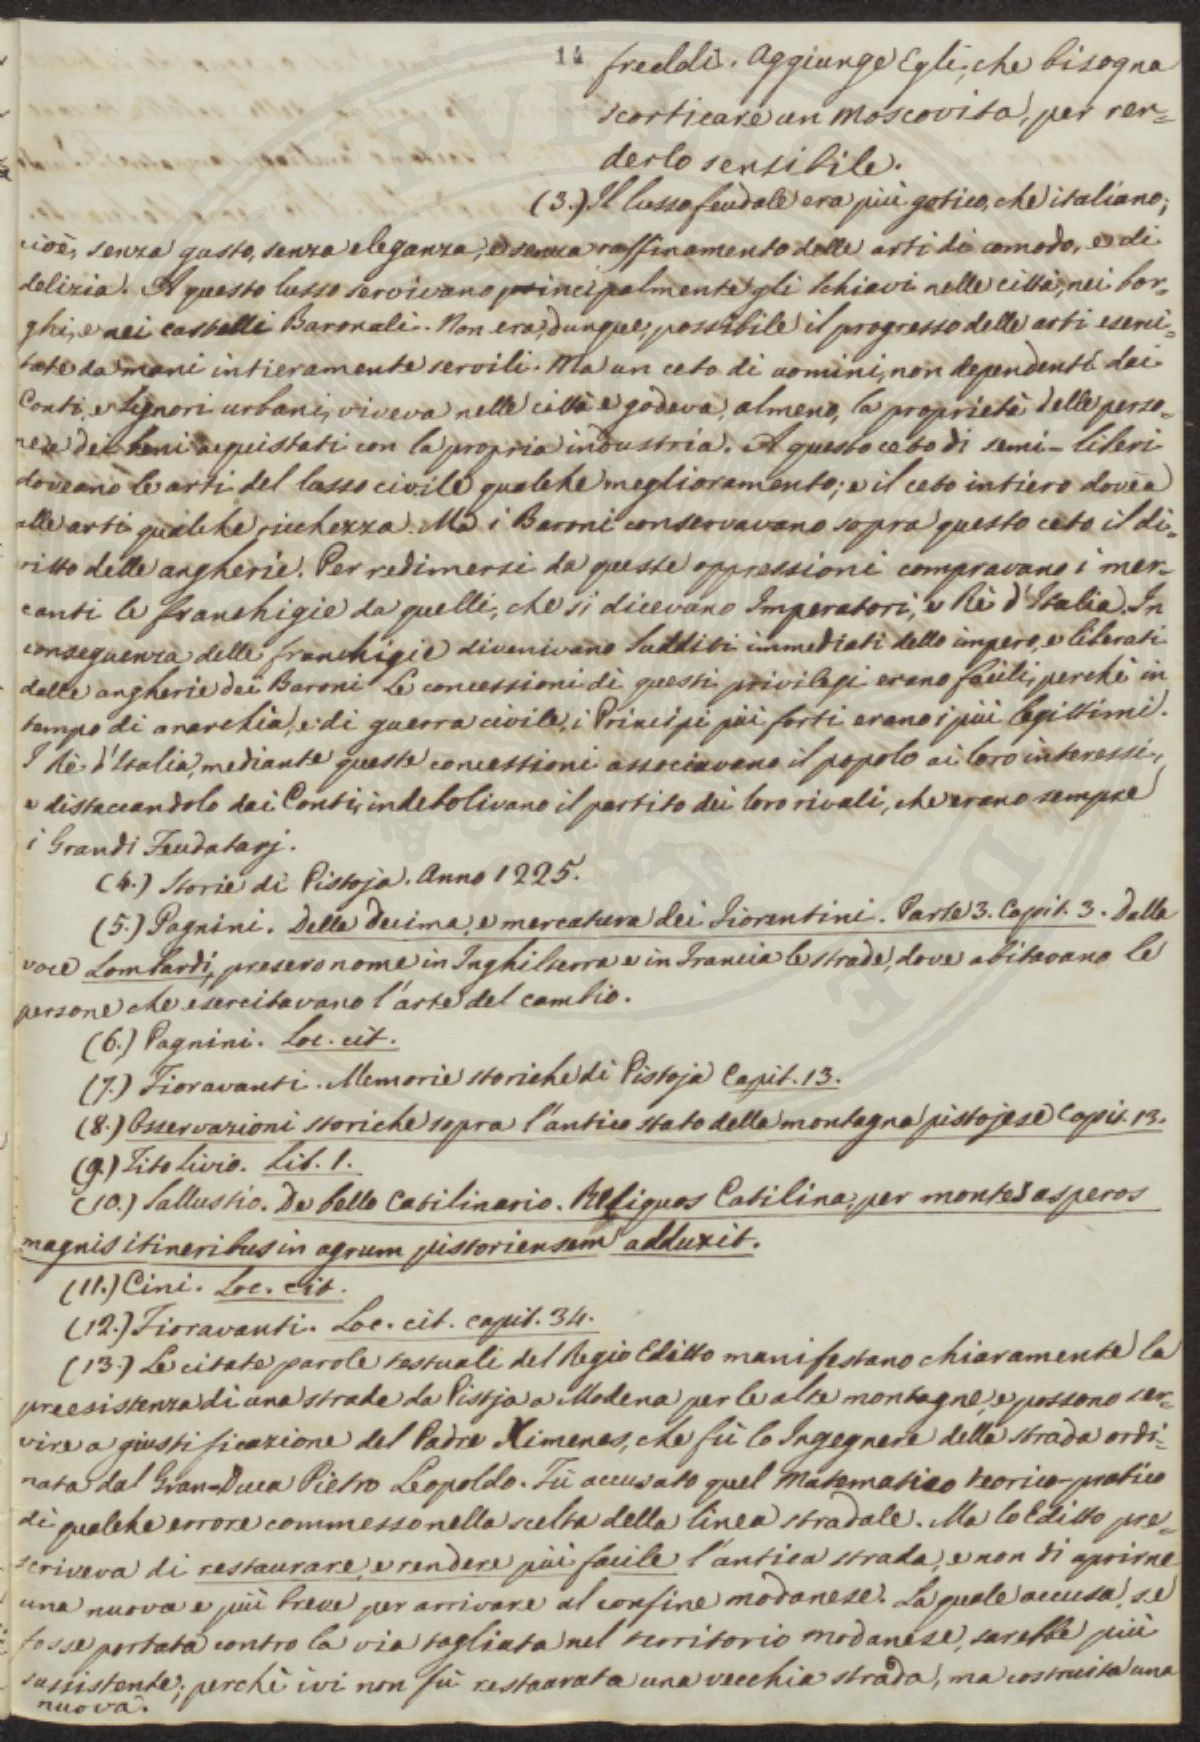 14
freddi. Aggiunge Egli, che bisogna
scorticare un Moscovita, per ren=
derlo sensibile.
(3.) Il lusso feudale era più gotico, che italiano;
cioè, senza gusto, senza eleganza, e senza raffinamento delle arti di comodo, e di
delizia. A questo lusso servivano principalmente gli Schiavi nelle città, nei bor=
ghi, e nei castelli Baronali. Non era, dunque, possibile il progresso delle arti eserci=
tate da mani intieramente servili. Ma un ceto di uomini, non dependenti dai
Conti, e Signori urbani, viveva nelle città e godeva, almeno, la proprietà delle perso=
ne e dei beni acquistati con la propria industria. A questo ceto di semi-liberi
doveano le arti del lusso civile qualche meglioramento; e il ceto intiero dovea
alle arti qualche ricchezza. Ma i Baroni conservavano sopra questo ceto il di=
ritto delle angherie. Per redimersi da queste oppressioni compravano i mer=
canti le franchigie da quelli, che si dicevano Imperatori, e Rè d'Italia. In
conseguenza delle franchigie divenivano Sudditi immediati dello impero, e liberati
dalle angherie dei Baroni. Le concessioni di questi privilegi erano facili, perchè in
tempo di anarchia, e di guerra civile, i Principi più forti erano i più legittimi.
I Rè d'Italia, mediante queste concessioni associavano il popolo ai loro interessi,
e distaccandolo dai Conti, indebolivano il partito dei loro rivali, che erano sempre
i Grandi Feudatarj.
(4.) Storie di Pistoja. Anno 1225.
(5.) Pagnini. Della Decima, e mercatura dei Fiorentini. Parte 3. Capit. 3. Dalla
voce Lombardi, presero nome in Inghilterra e in Francia le strade, dove abitavano le
persone che esercitavano l'arte del cambio.
(6.) Pagnini. Loc. cit.
(7.) Fioravanti. Memorie storiche di Pistoja Capit. 13.
(8.) Osservazioni storiche sopra l'antico stato della montagna pistojese Capit. 13.
(9.) Tito Livio. Lib. 1.
(10.) Sallustio. De bello Catilinario. Reliquos Catilina, per montes asperos
magnis itineribus in agrum pistoriensem adduxit.
(11.) Cini. Loc. cit.
(12.) Fioravanti. Loc. cit. capit. 34.
(13.) Le citate parole testuali del Regio Editto manifestano chiaramente la
preesistenza di una strada da Pistoja a Modena per le alte montagne, e possono ser=
vire a giustificazione del Padre Ximenes, che fù lo Ingegnere della strada ordi=
nata dal Gran-Duca Pietro Leopoldo. Fù accusato quel Matematico teorico-pratico
di qualche errore commesso nella scelta della linea stradale. Ma lo Editto pre=
scriveva di restaurare, e rendere più facile l'antica strada, e non di aprirne
una nuova e più breve per arrivare al confine modanese. La quale accusa, se
fosse portata contro la via tagliata nel territorio modanese, sarebbe più
sussistente; perchè ivi non fù restaurata una vecchia strada, ma costruita una
nuova.